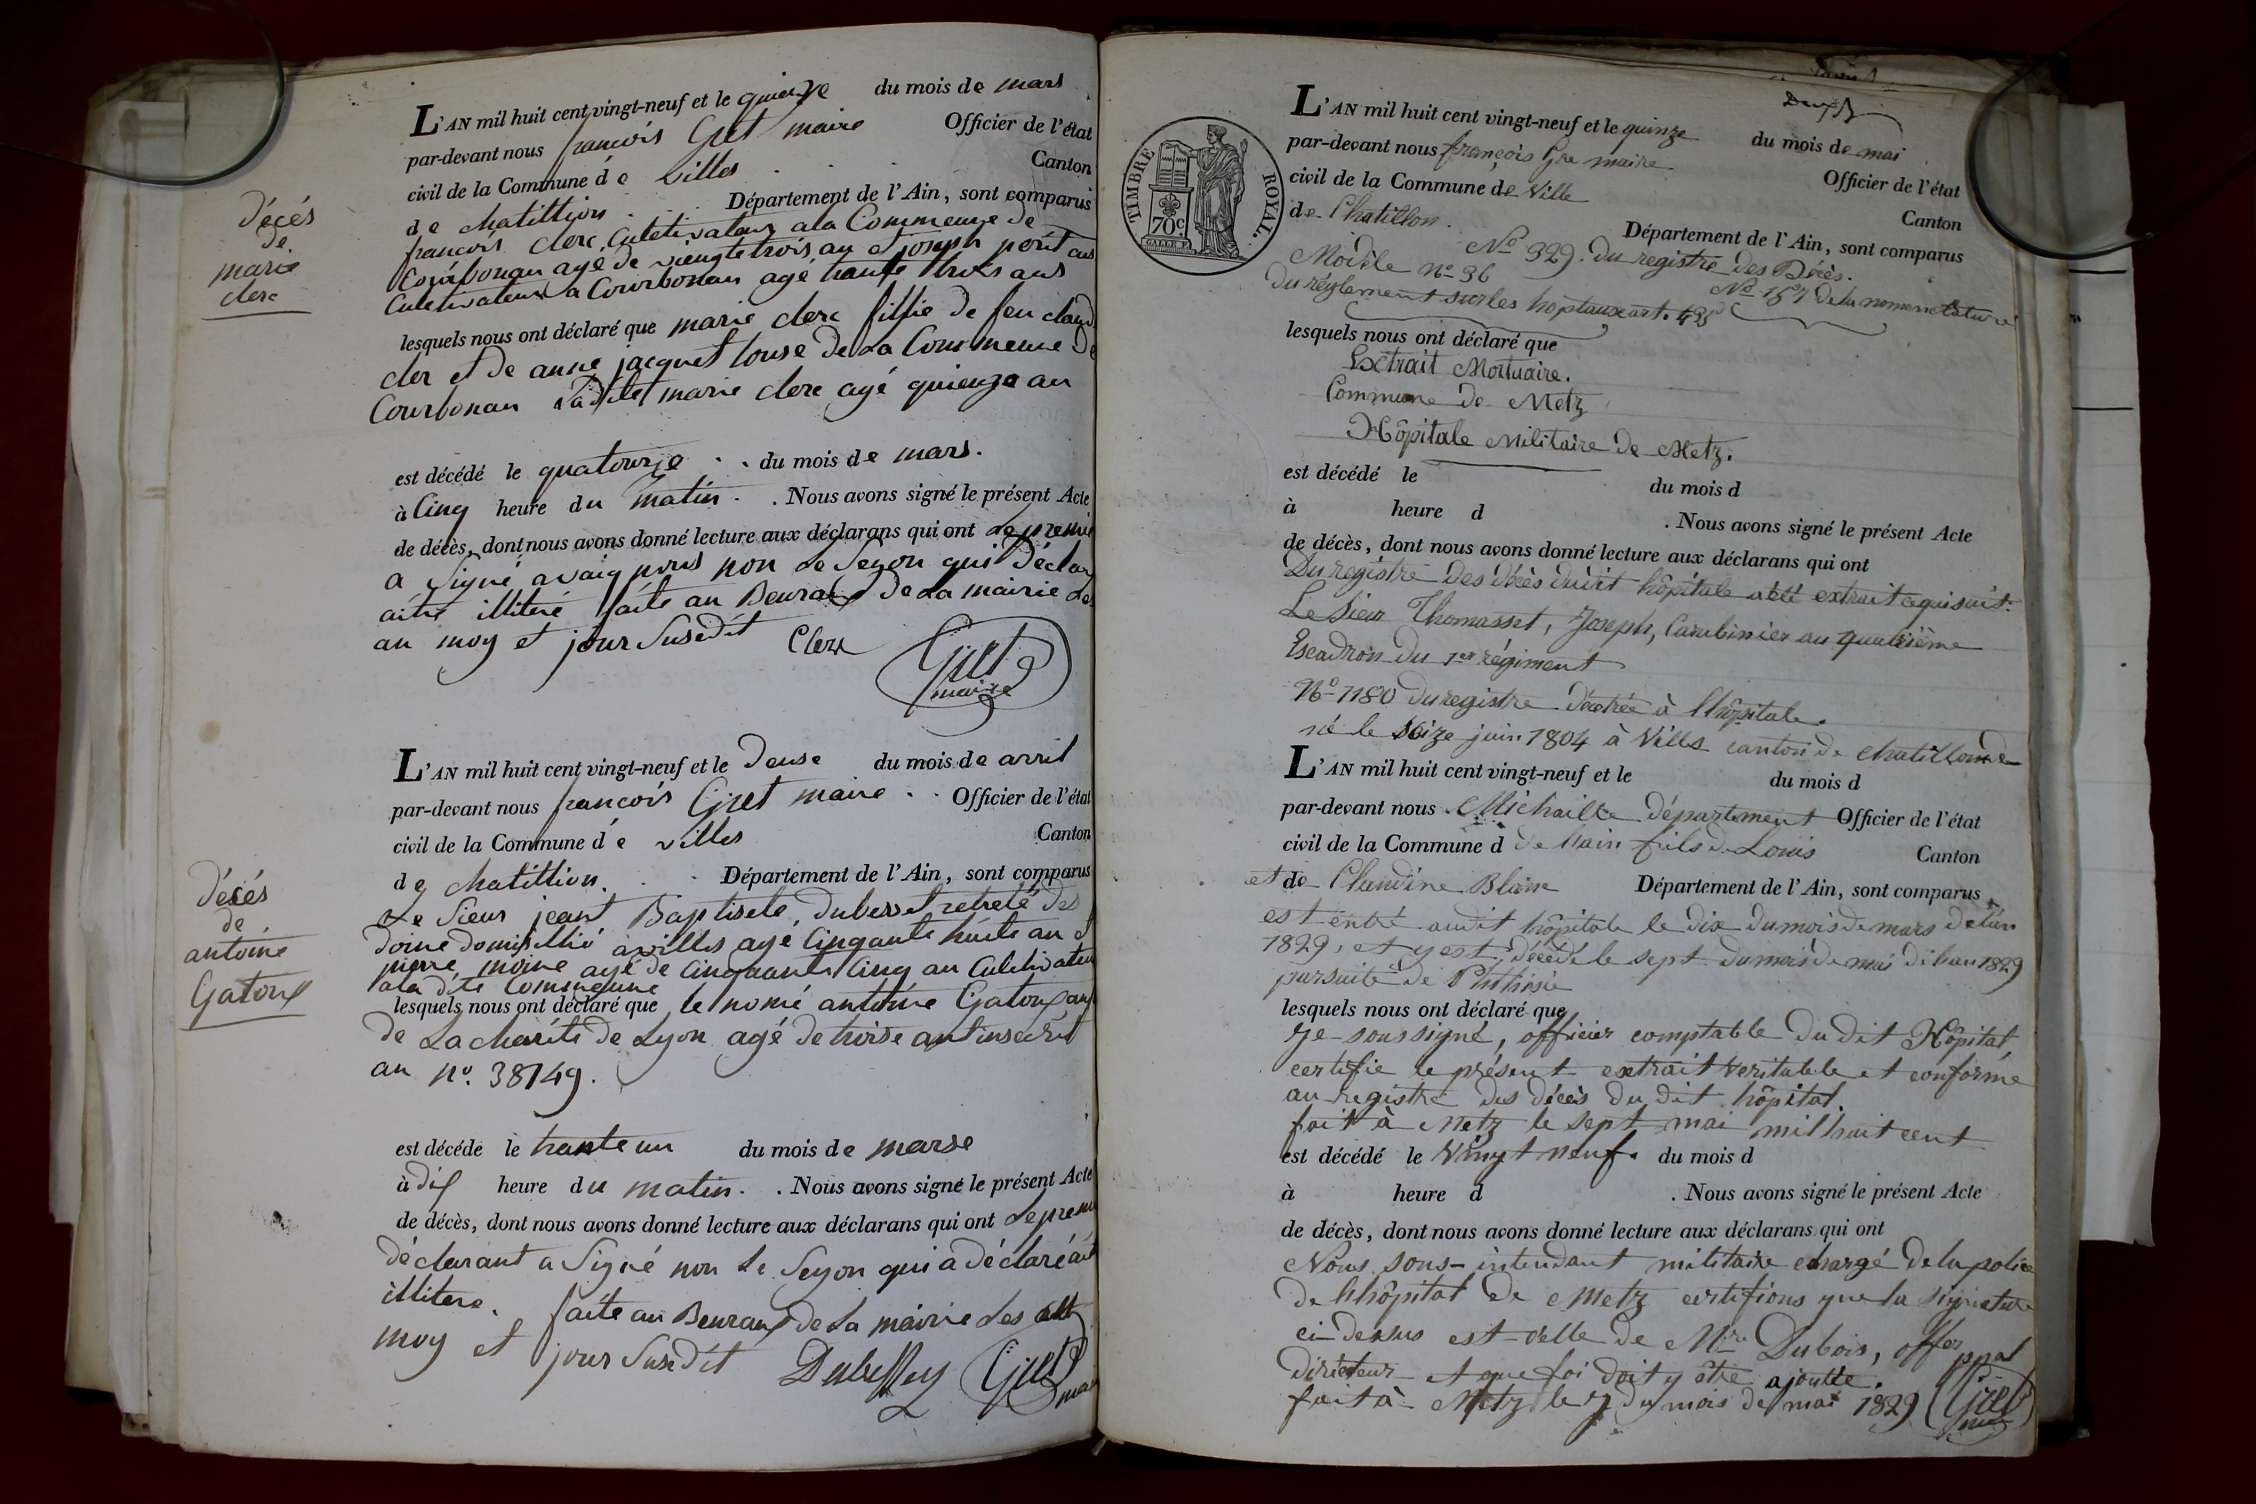 décés
de
marie
clerc
L'AN mil huit cent vingt-neuf et le quienze du mois de mars
par-devant nous francois Gret maire Officier de l'état
civil de la Commune d e villes Canton
de chatillion Département de l'Ain, sont comparus
francois clerc Culetivateur a la Commeune de
agé de viengte trois an et joseph
Culetivateur a Courbonan agé trante trois ans
lesquels nous ont déclaré que marie clerc fillie de feu claud
cler et de anne jacquet touse de La Commeune de
Courbonan Ladite marie clerc agé quienze an
est décédé le quatourze du mois de mars.
à Cinq heure du matin. . Nous avons signé le présent Acte
de décès, dont nous avons donné lecture aux déclarans qui ont Le premie
a Signé avaiq nous non Le Segon qui Déclar
aitre illiteré faite au Beuraux De La mairie Les
an moy et jour Susedit Clerc Gret
maire
décés
de
antoine
Gatoux
L'AN mil huit cent vingt-neuf et le deuse du mois de avril
par-devant nous francois Gret maire Officier de l'état
civil de la Commune d e villes Canton
de chatillion. Département de l'Ain, sont comparus
Le Sieur jeant Baptisete dubesset retreté des
doine domisillié a villes agé Cinqante huite an et
pierre moine agé de Cinquante Cinq an Culetivateur
a la dite Commeune
lesquels nous ont déclaré que le nomé antoine Gatoux
de La charité de Lyon agé de troise ant insecrit
au n°. 38749.
est décédé le trante un du mois de marse
à dix heure du matin. . Nous avons signé le présent Acte
de décès, dont nous avons donné lecture aux déclarans qui ont Le premie
déclarant a Signé non Le Segon qui a Déclaré ait
illitere. faite au Beuraux de La mairie Les an
moy et jour Susedit Dubessey Gret
maire
Deux
TIMBRE ROYAL.
70c
L'AN mil huit cent vingt-neuf et le quinze du mois de mai
par-devant nous françois Gre maire Officier de l'état
civil de la Commune de Ville Canton
de Chatillon. Département de l'Ain, sont comparus
N° 329. du registre des Décès.
Modèle n° 36 N° de la nomenclature
du réglement sur les hôpitaux art.
lesquels nous ont déclaré que
Extrait Mortuaire.
Commune de Metz
Hôpitale Militaire de Metz.
est décédé le du mois d
à heure d . Nous avons signé le présent Acte
de décès, dont nous avons donné lecture aux déclarans qui ont
Du registre Des décès dudit hôpitale a été extrait ce qui suit:
Le Sieur Thomasset, Joseph, Carabinier au quatrième
Escadron du 1er régiment
N° 1180 du registre d'entrée à l'hôpitale.
né le Seize juin 1804 à Villes canton de chatillon de
L'AN mil huit cent vingt-neuf et le du mois d
par-devant nous Michaille département Officier de l'état
civil de la Commune d de l'ain fils de Louis Canton
et de Claudine Blanc Département de l'Ain, sont comparus
est entré audit hôpitale le dix du mois de mars de l'an
1829, et y est décédé le sept du mois de mai de l'an 1829
par suite de Phthisie
lesquels nous ont déclaré que
Je soussigné, officier comptable du dit Hôpital,
certifie le présent extrait veritable et conforme
au registre des décès du dit hôpital.
fait à Metz le sept mai mil huit cent
est décédé le Vingt neuf. du mois d
à heure d . Nous avons signé le présent Acte
de décès, dont nous avons donné lecture aux déclarans qui ont
Nous sous-intendant militaire chargé de la police
de l'hôpital de Metz certifions que la signature
ci-dessus est celle de Mr. Dubois, offer ppal
directeur et que foi doit y être ajoutée.
fait à Metz le 7 du mois de mai 1829 Gret